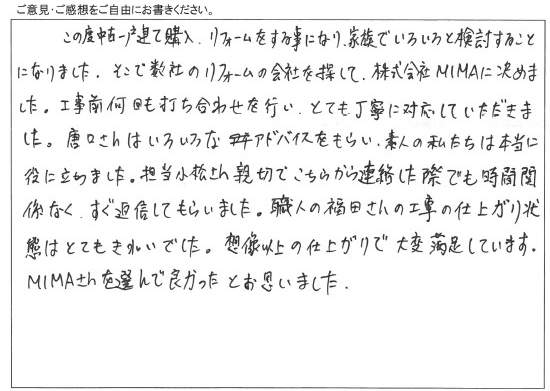 ご意見・ご感想をご自由にお書きください。
この度中古一戸建て購入、リフォームをする事になり、家族でいろいろと検討すること
になりました。そこで数社のリフォームの会社を探して、株式会社MIMAに決めま
した。工事前何回も打ち合わせを行い、とても丁寧に対応していただきま
した。唐口さんはいろいろなアドバイスをもらい、素人の私たちは本当に
役に立ちました。担当小松さん親切でこちらから連絡した際でも時間関
係なく、すぐ返信してもらいました。職人の福田さんの工事の仕上がり状
態はとてもきれいでした。想像以上の仕上がりで大変満足しています。
MIMAさんを選んで良かったとお思いました。